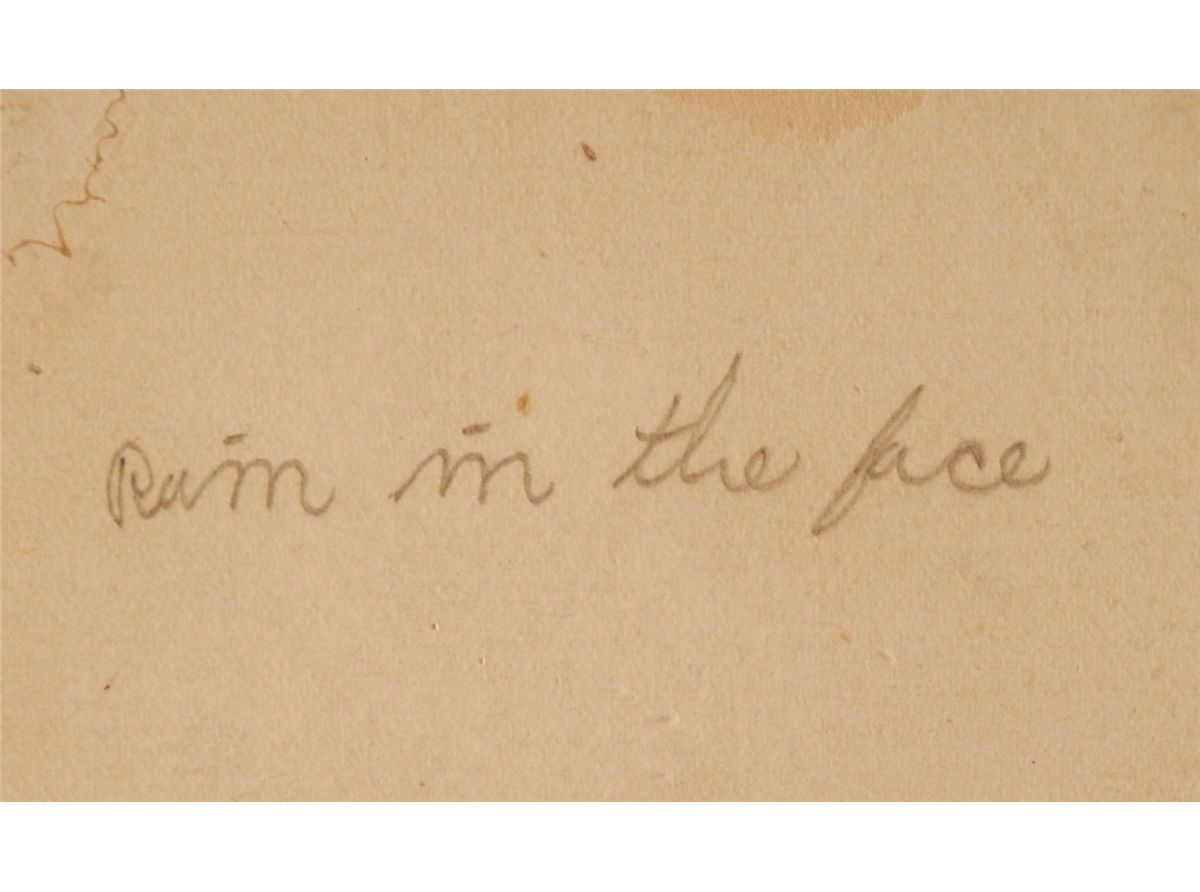 Rain in the face